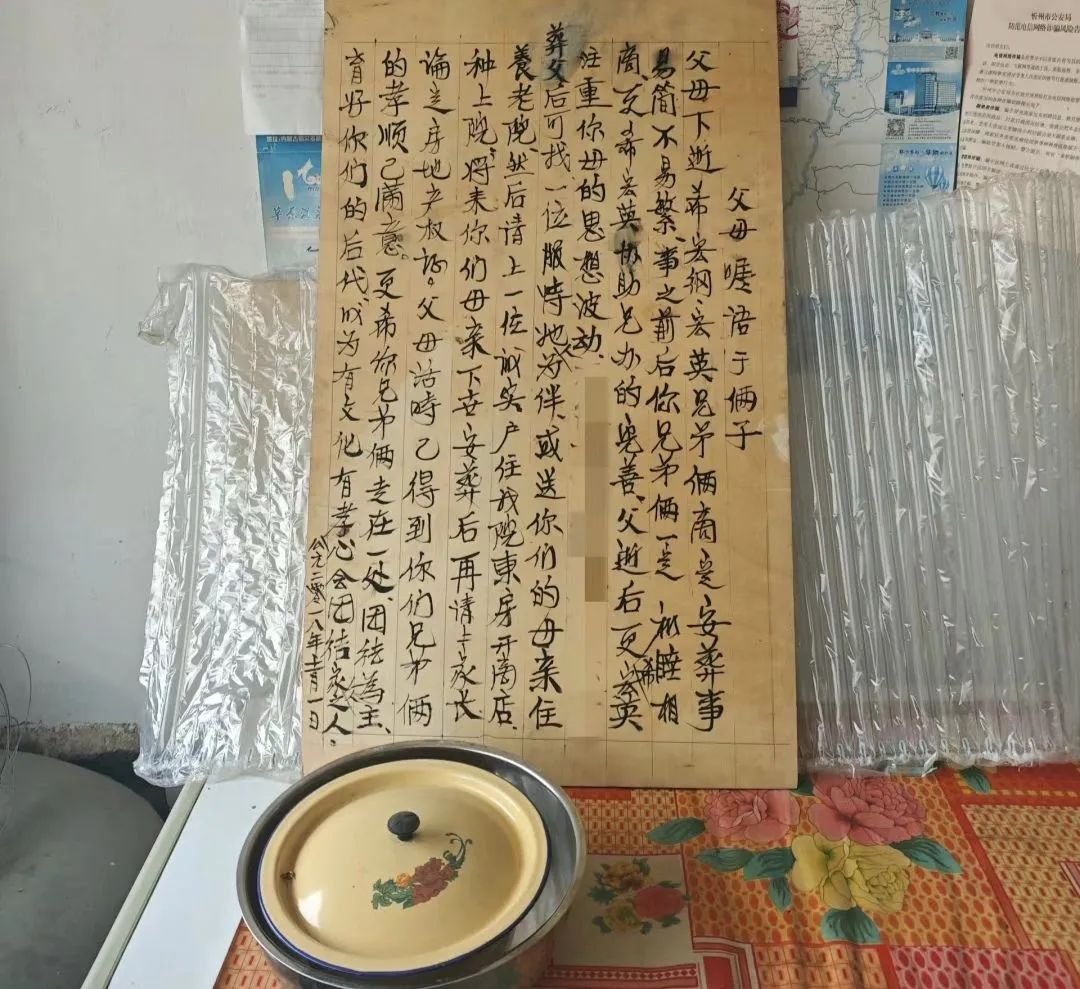 父母嘱语于俩子
父母下逝希宏纲宏英兄弟俩商定安葬事
易简不易繁、事之前后你兄弟俩一定和睦相
商,更希宏英协助兄办的完善、父逝后更希宏英
注重你母的思想波动、
葬父后可找一位服侍她为伴、或送你们的母亲住
養老院,然后请上一位诚实户住我院東房开商店、
种上院,将来你们母亲下世安葬后再请上家长
论定房地产权 。父母活時已得到你们兄弟俩
的孝顺已满意。更希你兄弟俩走在一处、团结為主、
育好你们的后代、成为有文化有孝心会团结家之人、
公元二零一八年 月一日
忻州市公安局
防范电信网络诈骗风险告